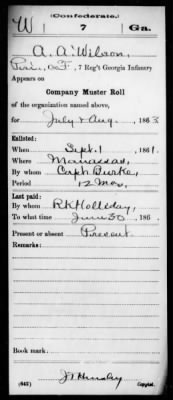 (Confederate.)
W 7 Ga.
A. A. Wilson,
Co. F, 7 Reg't Georgia Infantry
Appears on
Company Muster Roll
of the organization named above,
for July & Aug, 1863
Enlisted:
When Sept. 1, 1861.
Where Manassas,
By whom Capt. Burke,
Period 12 Mos.
Last paid:
By whom R K Holliday,
To what time June 30, 186 .
Present or absent Present
Remarks:
Book mark:
(642) Copyist.